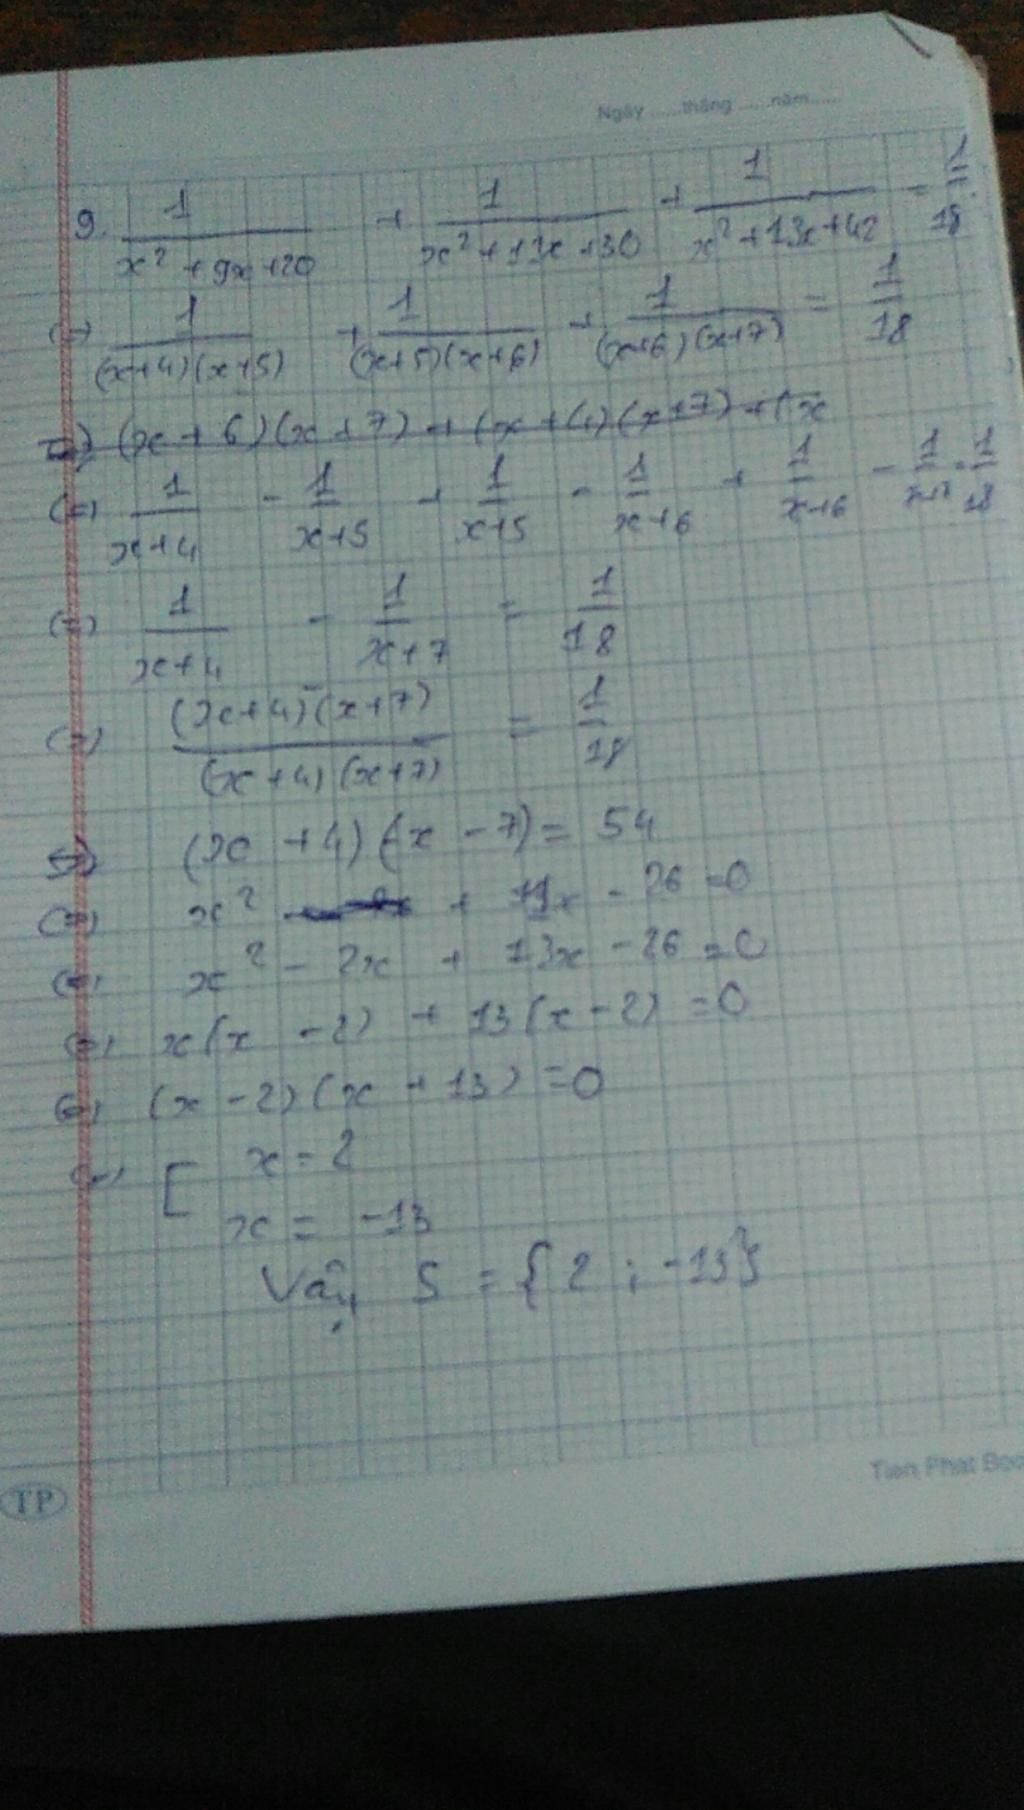 Ngày ......tháng ......năm......
9. 1/(x² + 9x + 20) + 1/(x² + 11x + 30) + 1/(x² + 13x + 42) = 1/18
(=) 1/((x+4)(x+5)) + 1/((x+5)(x+6)) + 1/((x+6)(x+7)) = 1/18
(=) (x + 6)(x + 7) + (x + 4)(x + 7) + (x
(=) 1/(x+4) - 1/(x+5) + 1/(x+5) - 1/(x+6) + 1/(x+6) - 1/(x+7) = 1/18
(=) 1/(x+4) - 1/(x+7) = 1/18
(=) ((x+4) - (x+7))/((x+4)(x+7)) = 1/18
(=) (x + 4)(x - 7) = 54
(=) x² + 11x - 26 = 0
(=) x² - 2x + 13x - 26 = 0
(=) x(x - 2) + 13(x - 2) = 0
(=) (x - 2)(x + 13) = 0
(=) [ x = 2
x = -13
Vậy S = {2 ; -13}
Tien Phat Boo
TP